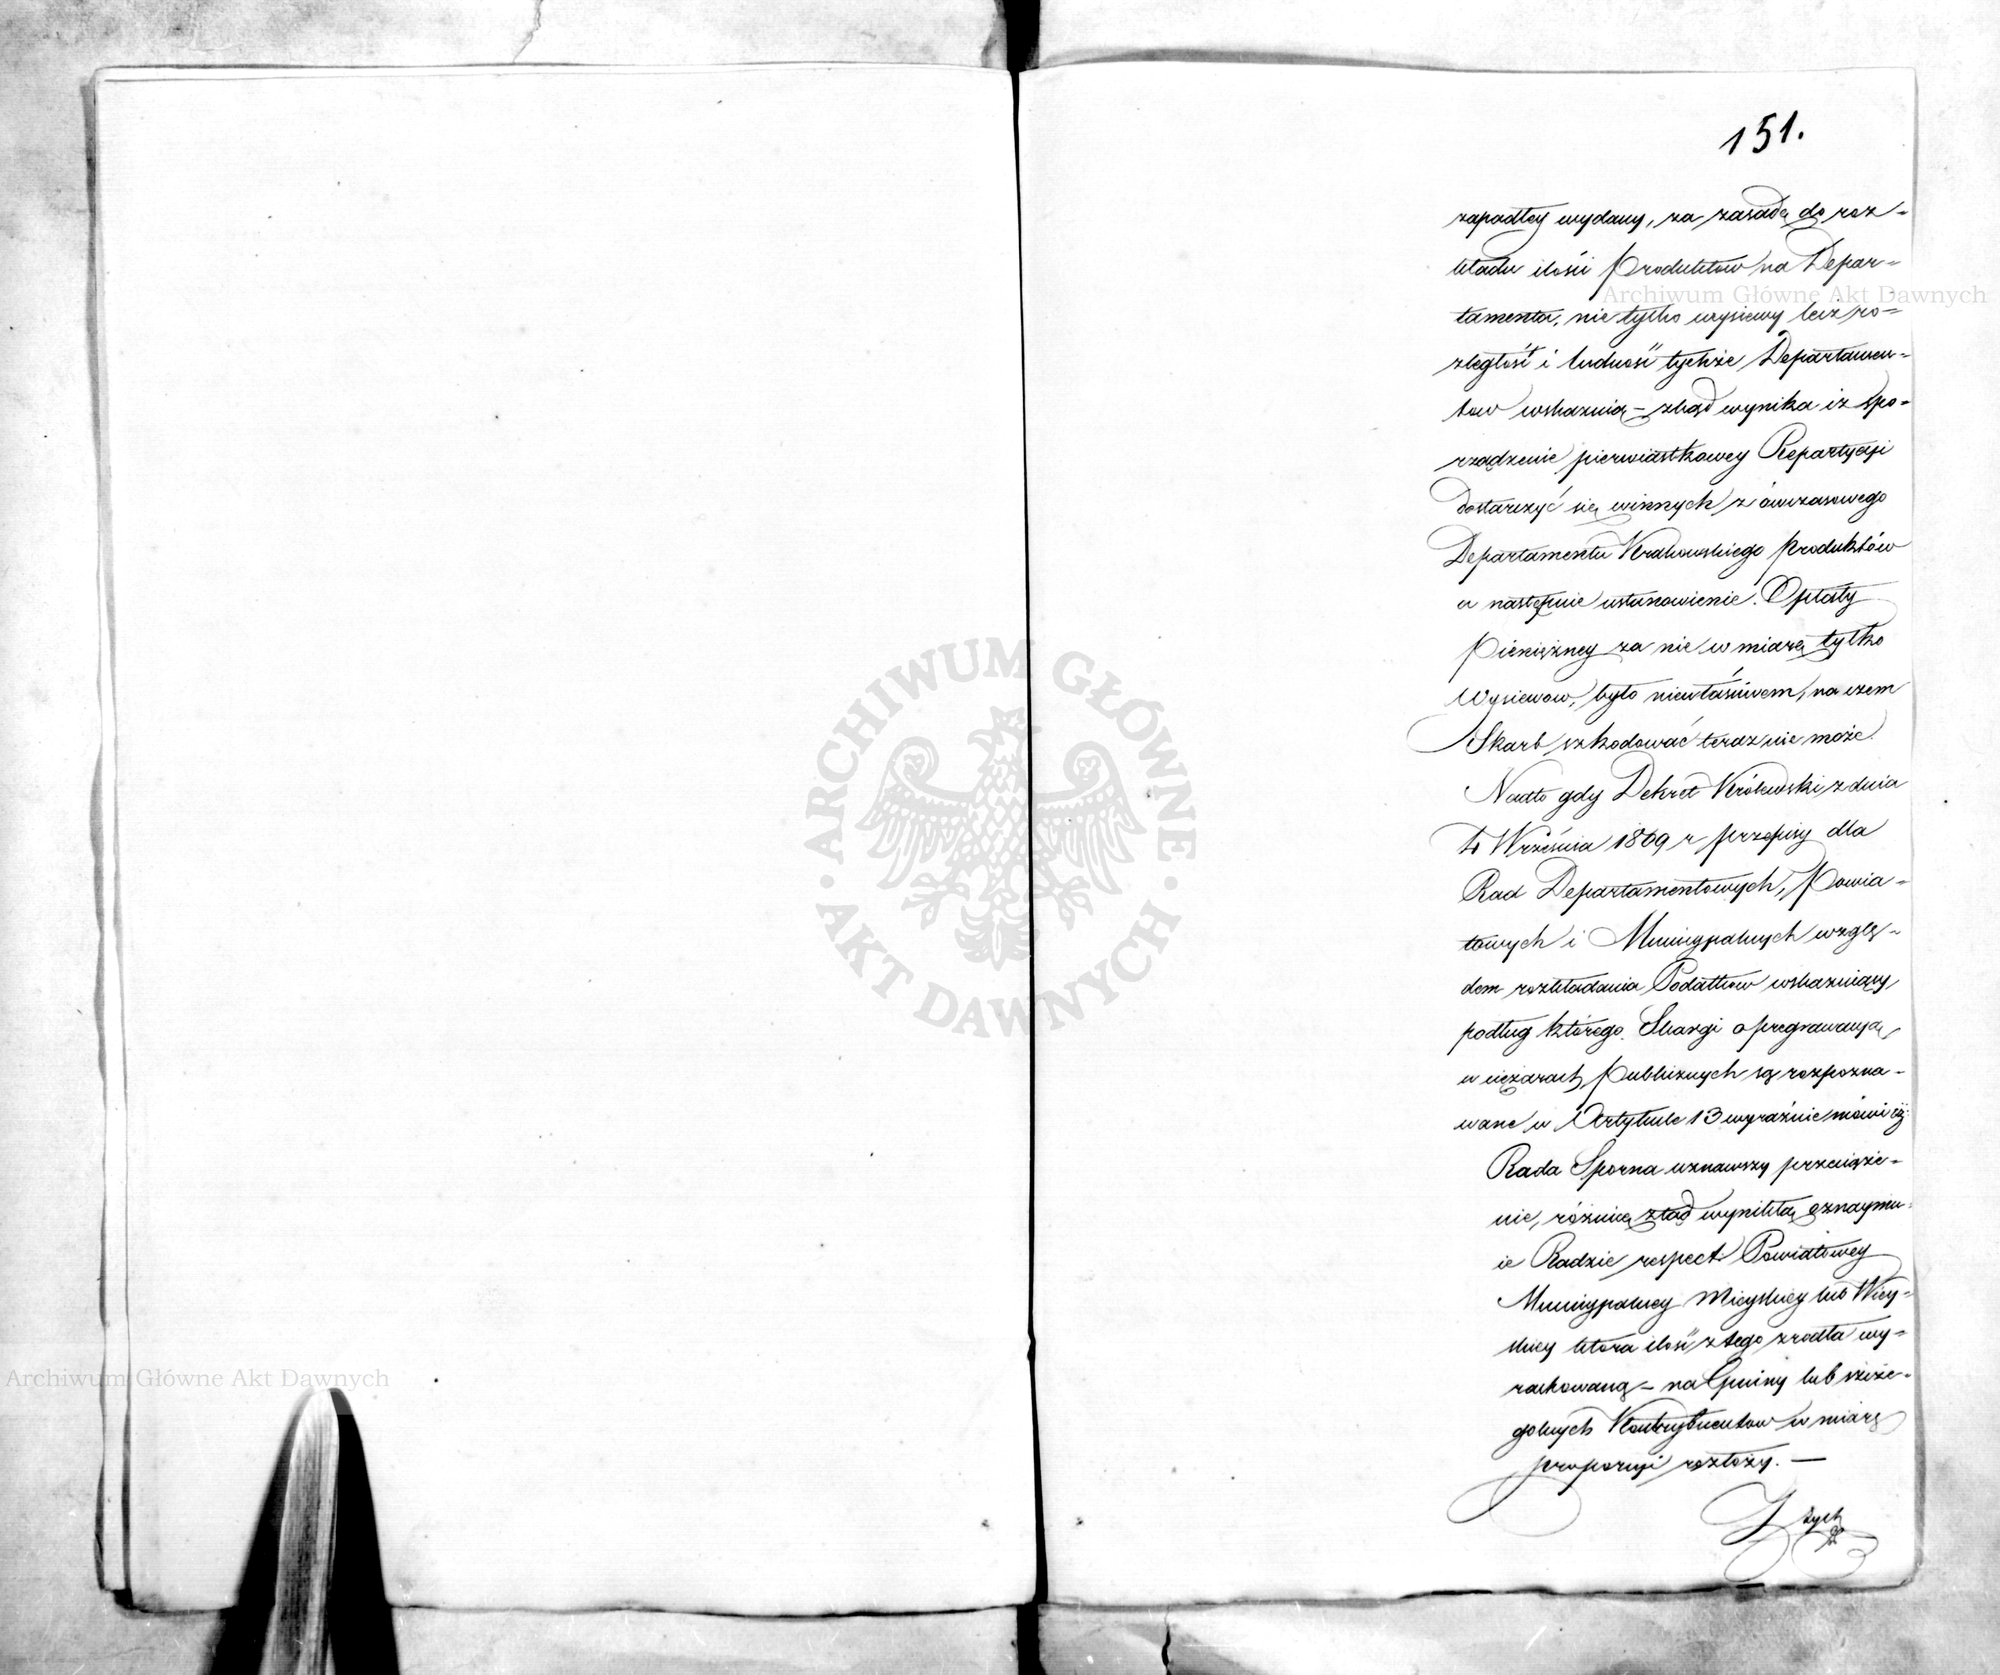 151.
zapadłey wydany, za zasadę do roz-
kładu ilości Produktów na Depar-
tamenta, nie tylko wysiewy lecz ro-
zległość i ludność tychże Departamen-
tow wskazuią – zkąd wynika iż spo-
rządzenie pierwiastkowey Repartycji
dostarczyć się winnych z ówczasowego
Departamentu Krakowskiego Produktów
a następnie ustanowienie Opłaty
Pieniężney za nie w miarę tylko
Wysiewow, było niewłaściwem, na czem
Skarb szkodować teraz nie może.
Nadto gdy Dekret Królewski z dnia
Września 1809 r przepisy dla
Rad Departamentowych, Powia-
towych i Municypalnych wzglę-
dem rozkładania Podatkow wskazuiący,
podług którego Skargi o pregrawacyą
w ciężarach Publicznych są rozpozna-
wane w Artykule 13 wyraźnie mówi iż:
Rada Sporna uznawszy przeciąże-
nie, różnicę ztąd wynikłą oznaymu-
ie Radzie respect: Powiatowey
Municypalney Mieyskiey lub Wiey-
skiey która ilość z tego zrodła wy-
rachowaną – na Gminy lub szcze-
golnych Kontrybuentow w miarę
proporcyi rozłoży. —
Z tych
Archiwum Główne Akt Dawnych
ARCHIWUM GŁÓWNE AKT DAWNYCH
Archiwum Główne Akt Dawnych